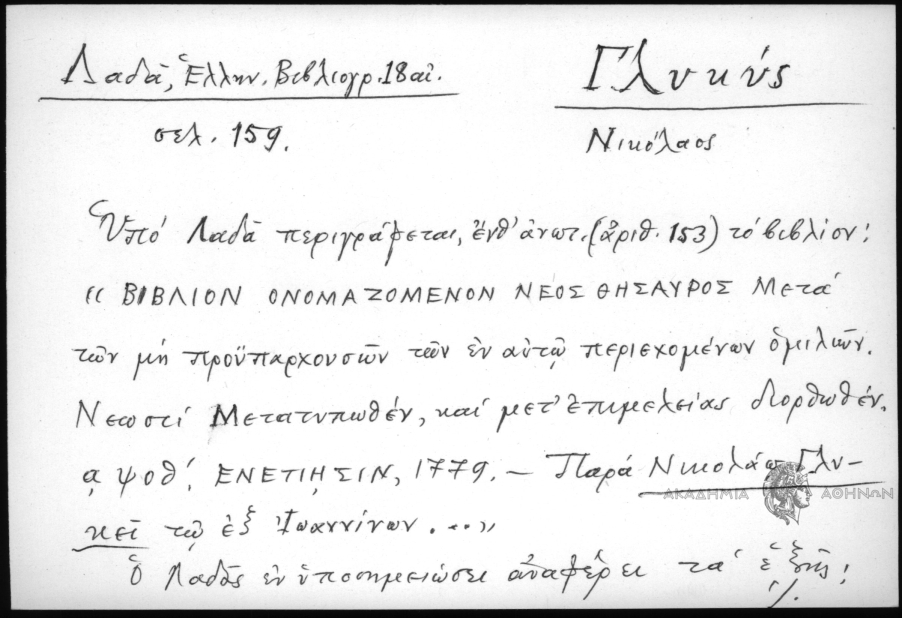 Λαδᾶ, Ἑλλην. Βιβλιογρ. 18 αἰ.
σελ. 159.
Γλυκύς
Νικόλαος
Ὑπό Λαδᾶ περιγράφεται, ἔνθ' ἀνωτ. (ἀριθ. 153) τό βιβλίον:
« ΒΙΒΛΙΟΝ ΟΝΟΜΑΖΟΜΕΝΟΝ ΝΕΟΣ ΘΗΣΑΥΡΟΣ Μετά
τῶν μή προϋπαρχουσῶν τῶν ἐν αὐτῷ περιεχομένων ὁμιλιῶν.
Νεωστί Μετατυπωθέν, καί μετ' ἐπιμελείας διορθωθέν.
α ψοθ'. ΕΝΕΤΙΗΣΙΝ, 1779. — Παρά Νικολάῳ Γλυ-
κεῖ τῷ ἐξ Ἰωαννίνων ...»
Ὁ Λαδᾶς ἐν ὑποσημειώσει ἀναφέρει τά ἑξῆς:
./.
ΑΚΑΔΗΜΙΑ ΑΘΗΝΩΝ